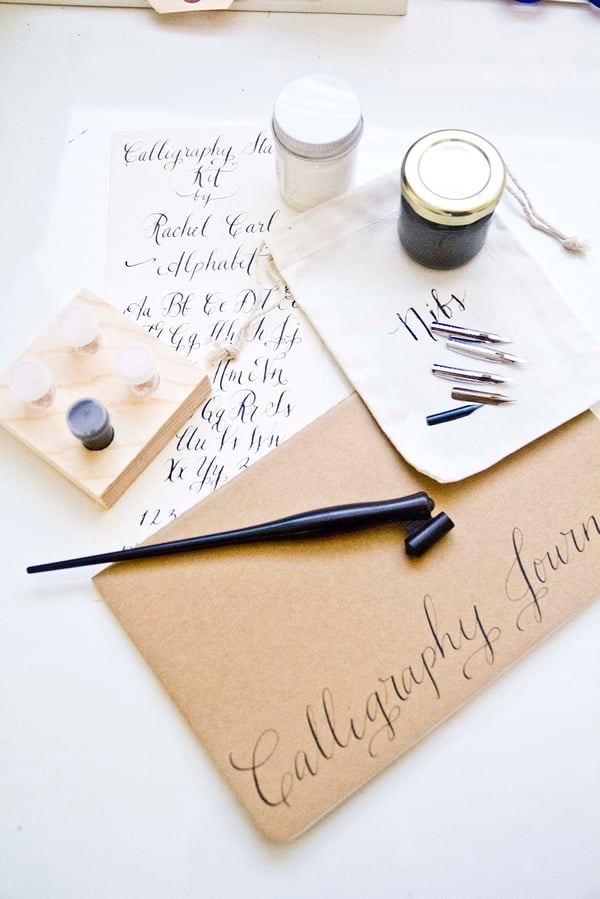 Calligraphy Sta
Kit
by
Rachel Carl
Alphabet
Aa Bb Cc Dd Ee
Gg Hh Ii Jj
Mm Nn
Qq Rr Ss
Uu Vv Ww
Xx Yy Z
1 2 3
Nibs
Calligraphy Journ